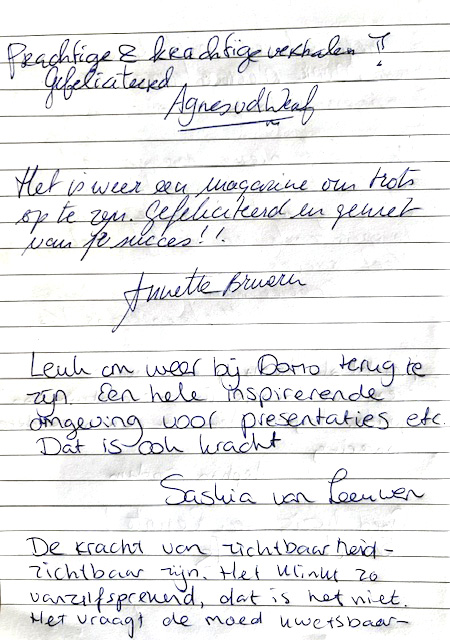 Prachtige & krachtige verhalen !!
Gefeliciteerd
Agnes vd
Het is weer een magazine om trots
op te zijn. Gefeliciteerd en geniet
van je succes!!
Annette
Leuk om weer bij Domo terug te
zijn. Een hele inspirerende
omgeving voor presentaties etc.
Dat is ook kracht
Saskia van Leeuwen
De kracht van zichtbaarheid -
zichtbaar zijn. Het klinkt zo
vanzelfsprekend, dat is het niet.
Het vraagt de moed kwetsbaar-